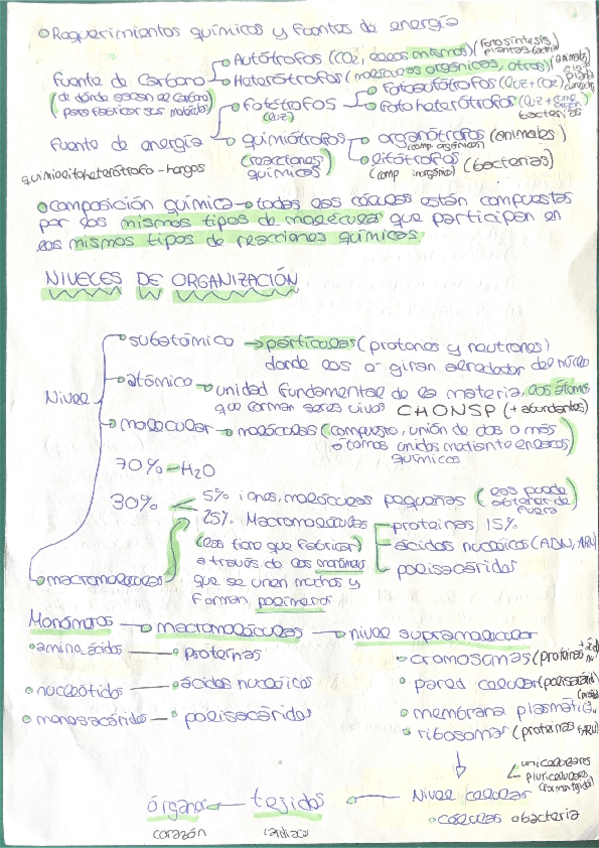 Requerimientos químicos y fuentes de energía
Fuente de Carbono
(de dónde sacan el carbono para fabricar sus moléculas)
Autótrofos (CO2, ellos mismos) (fotosíntesis) plantas
Heterótrofos (moléculas orgánicas, otros) (animales)
Fuente de energía
Fotótrofos (luz)
Fotoautótrofos (luz+CO2)
Fotoheterótrofos (luz+
bacterias
quimiótrofos (reacciones químicas)
organótrofos (animales)
(comp orgánicos)
litótrofos (bacterias)
(comp inorgánico)
quimiolitoheterótrofo - hongos
composición química → todas las células están compuestas
por los mismos tipos de moléculas que participan en
los mismos tipos de reacciones químicas.
NIVELES DE ORGANIZACIÓN
Nivel
subatómico → partículas (protones y neutrones)
donde los e- giran alrededor del núcleo
atómico → unidad fundamental de la materia, los átomos
que forman seres vivos CHONSP (+ abundantes)
molecular → moléculas (compuesto, unión de dos o más
átomos unidos mediante enlaces
químicos)
70% - H2O
30% < 5% iones, moléculas pequeñas (las puede obtener de fuera)
25% Macromoléculas
(las tiene que fabricar)
a través de los monómeros
que se unen muchos y
forman polímeros
proteínas 15%
ácidos nucleicos (ADN, ARN)
polisacáridos
macromoléculas
Monómeros → macromoléculas → nivel supramolecular
aminoácidos — proteínas
nucleótidos — ácidos nucleicos
monosacáridos — polisacáridos
cromosomas (proteínas
pared celular (polisacárid
membrana plasmática
ribosomas (proteínas + ARN)
Nivel celular
unicelulares
pluricelulares
células o bacteria
órganos ← tejidos ←
corazón cardiaco